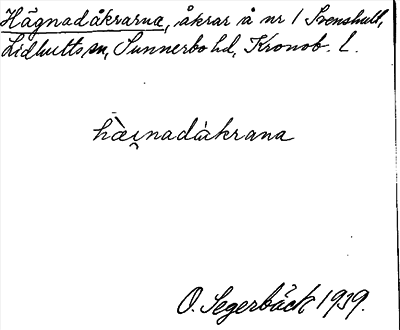 Hägnadåkrarna, åkrar å nr 1 Svenshult,
Lidhults sn, Sunnerbo hd, Kronob. l.
hæ̀i̯nadàkrana
O. Segerbäck 1939.